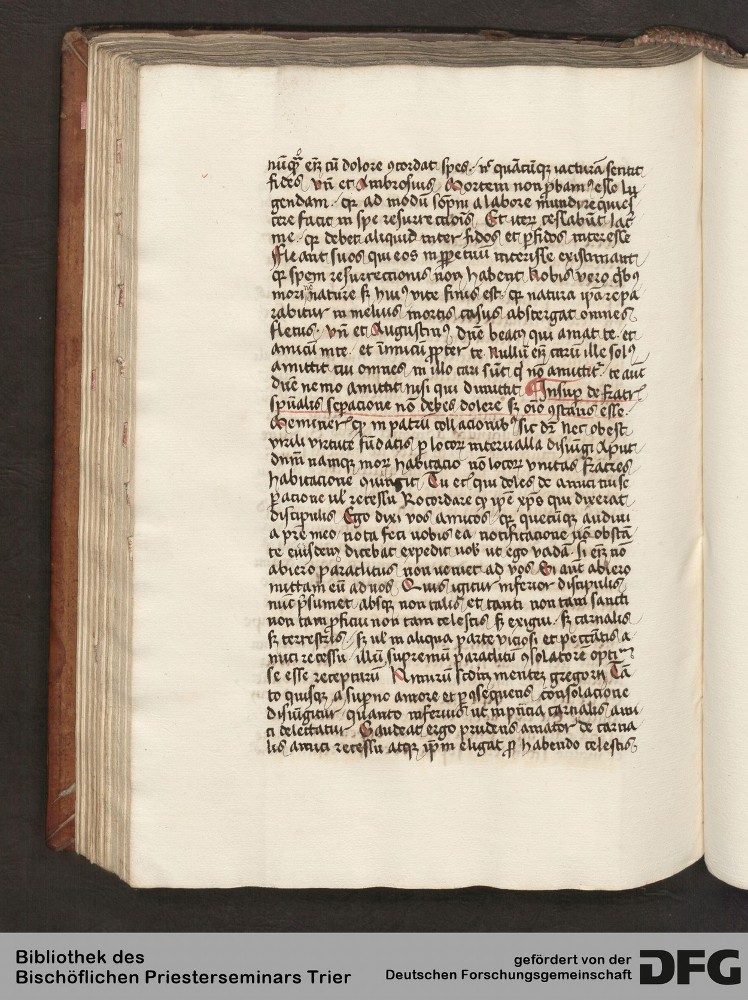 nūqͣ em̄ cū dolore ꝯcordat spes · nͨ quātūcūqꝫ iacturā sentit
fides vn̄ et Ambrosius Mortem non ꝓbamꝰ esse lu
gendam · qꝛ ad modū sopni a labore mūdi requies
cere facit in spe resurrectiōis Et iteꝝ cessabūt lac̄
me · qꝛ debet aliquid inter fidos et ꝑfidos interesse
Fleant suos qui eos in ꝑpetuū interisse existimant
qꝛ spem resurrectionis non habent Nobis vero qͥbꝰ
mori nō nature sꝫ huiꝰ vite finis est · qꝛ natura ip̄a repa
rabitur in melius mortis casus abstergat omnes
fletus · vn̄ et Augustinꝰ dn̄e beatꝰ qui amat te · et
amicū in te · et inimicū ꝓpter te Nullū em̄ carū ille solꝰ
amittit cui omnes in illo cari sūt qͥ nō amittitͬ · te aūt
dn̄e nemo amittit nisi qui dimittit Insuꝑ de fratrͥ
spūalis seꝑacione nō debes dolere sꝫ oīo ꝯstans esse ·
Meminerͥ qͥ in patrū collacionibꝰ sic dr̄ Nec obest
virili virtute fūdatis ꝑ locoꝝ interualla disiūgi Apud
dn̄m namqꝫ moꝝ habitacio nō locoꝝ vnitas fratres
habitacione ꝯiungit Tu etͥ qui doles de amici tui se
ꝑacione ul̓ recessu Recordare qͥ ip̄e xp̄s qui dixerat
discipulis Ego dixi vos amicos · qꝛ quecūqꝫ audiui
a pr̄e meo nota feci uobis ea notificatione nō obstā
te eiusdem dicebat expedit uob̓ ut ego vadā Si em̄ nō
abiero paraclitus non ueniet ad vos Si aūt abiero
mittam eū ad uos Quis igitur inferior discipulis
nūc p̄sumet absqꝫ non talis et tanti non tam sancti
non tam ꝑfecti non tam celestis sꝫ exigui · sꝫ carnalis
sꝫ terrestris · sꝫ ul̓ in aliqua parte viciosi et peccātis a
mici recessu illū supremū paraclitū ꝯsolatorē opti
se esse recepturū Nimirū scd̄m mentē gregorij Tā
to quisqꝫ a suꝑno amore et ꝑ ꝯsequens consolacione
disiūgitur quanto inferius ut in p̄ncia carnalis ami
ci delectatur Gaudeat ergo prudens amator de carna
lis amici recessu atqꝫ ip̄m eligat ꝓ habendo celestis
Bibliothek des
Bischöflichen Priesterseminars Trier
gefördert von der
Deutschen Forschungsgemeinschaft
DFG